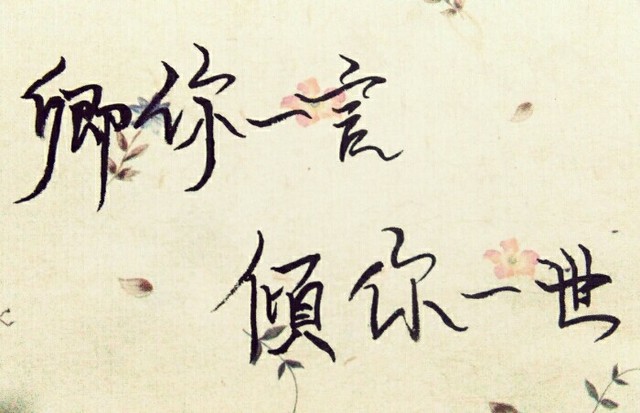 卿你一言
倾你一世